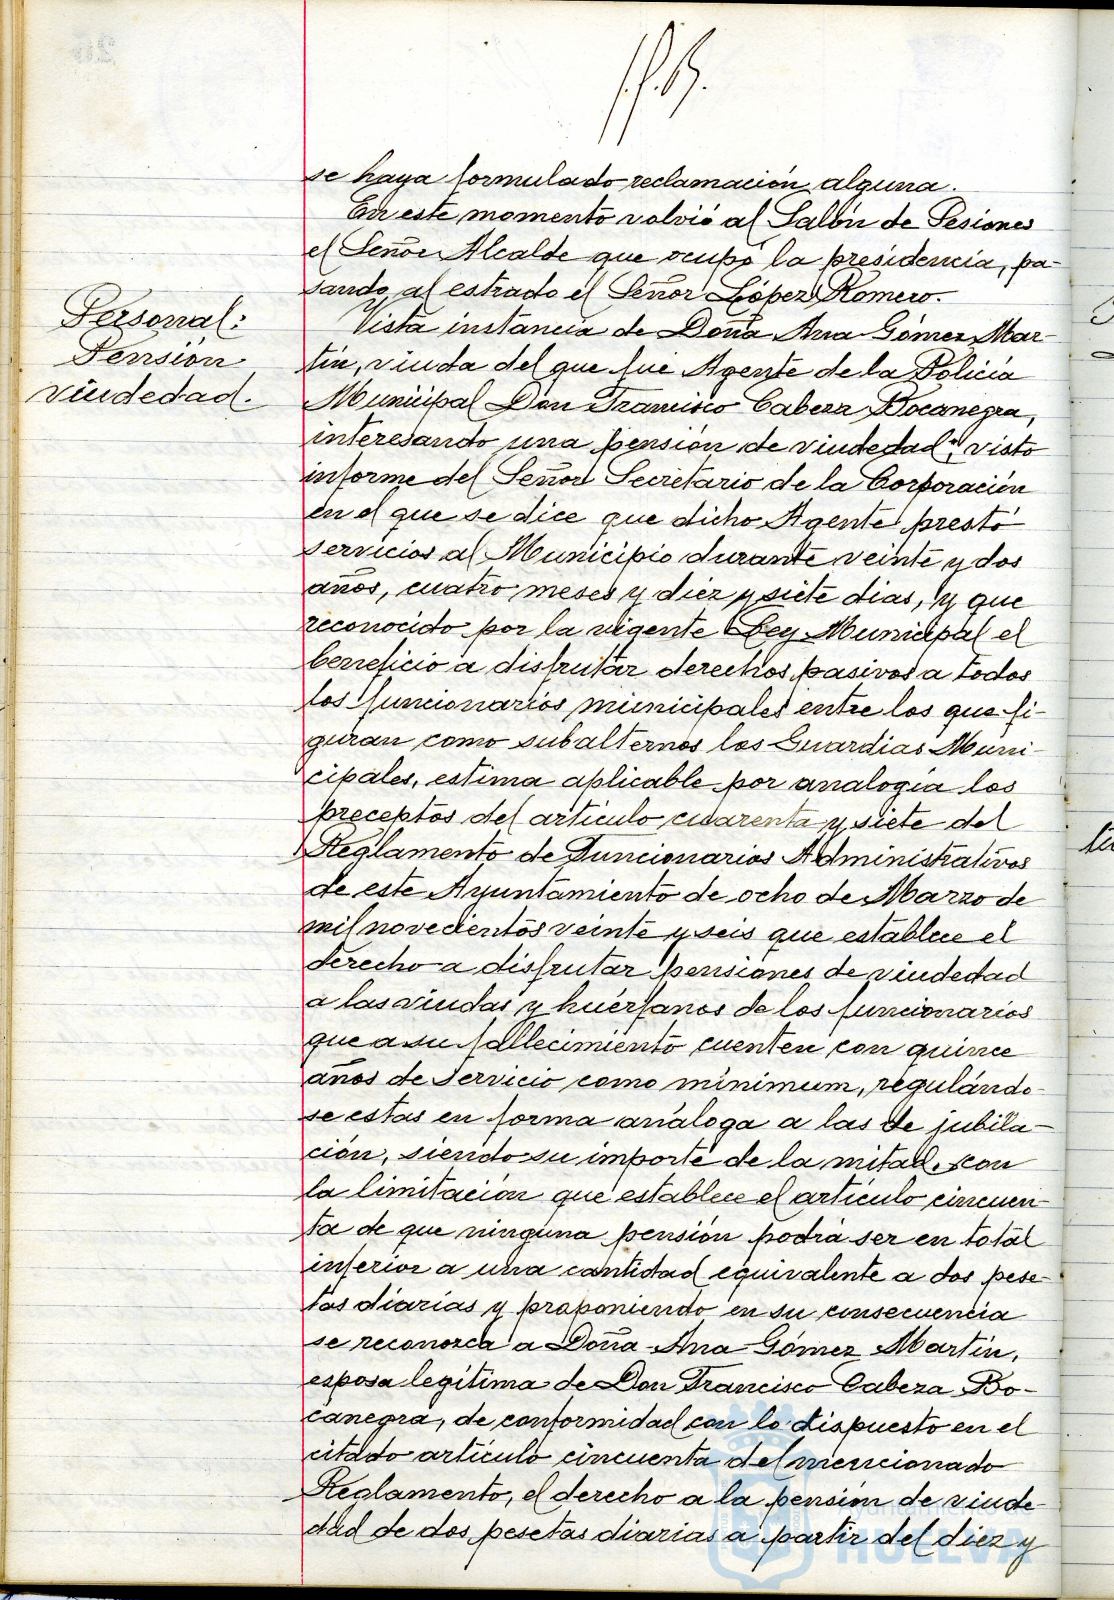 se haya formulado reclamación alguna.
En este momento volvió al Salón de Sesiones
el Señor Alcalde que ocupó la presidencia, pa-
sando al estrado el Señor López Romero.
Personal:
Pensión
viudedad.
Vista instancia de Doña Ana Gómez Mar-
tín, viuda del que fue Agente de la Policía
Municipal Don Francisco Cabeza Bocanegra,
interesando una pensión de viudedad; visto
informe del Señor Secretario de la Corporación
en el que se dice que dicho Agente prestó
servicios al Municipio durante veinte y dos
años, cuatro meses y diez y siete dias, y que
reconocido por la vigente Ley Municipal el
beneficio a disfrutar derechos pasivos a todos
los funcionarios municipales entre los que fi-
guran como subalternos los Guardias Muni-
cipales, estima aplicable por analogía los
preceptos del artículo cuarenta y siete del
Reglamento de Funcionarios Administrativos
de este Ayuntamiento de ocho de Marzo de
mil novecientos veinte y seis que establece el
derecho a disfrutar pensiones de viudedad
a las viudas y huérfanos de los funcionarios
que a su fallecimiento cuenten con quince
años de servicio como mínimum, regulándo-
se estas en forma análoga a las de jubila-
ción, siendo su importe de la mitad, con
la limitación que establece el artículo cincuen-
ta de que ninguna pensión podrá ser en total
inferior a una cantidad equivalente a dos pese-
tas diarias y proponiendo en su consecuencia
se reconozca a Doña Ana Gómez Martín,
esposa legítima de Don Francisco Cabeza Bo-
canegra, de conformidad con lo dispuesto en el
citado artículo cincuenta del mencionado
Reglamento, el derecho a la pensión de viude-
dad de dos pesetas diarias a partir del diez y
Ayuntamiento de
HUELVA